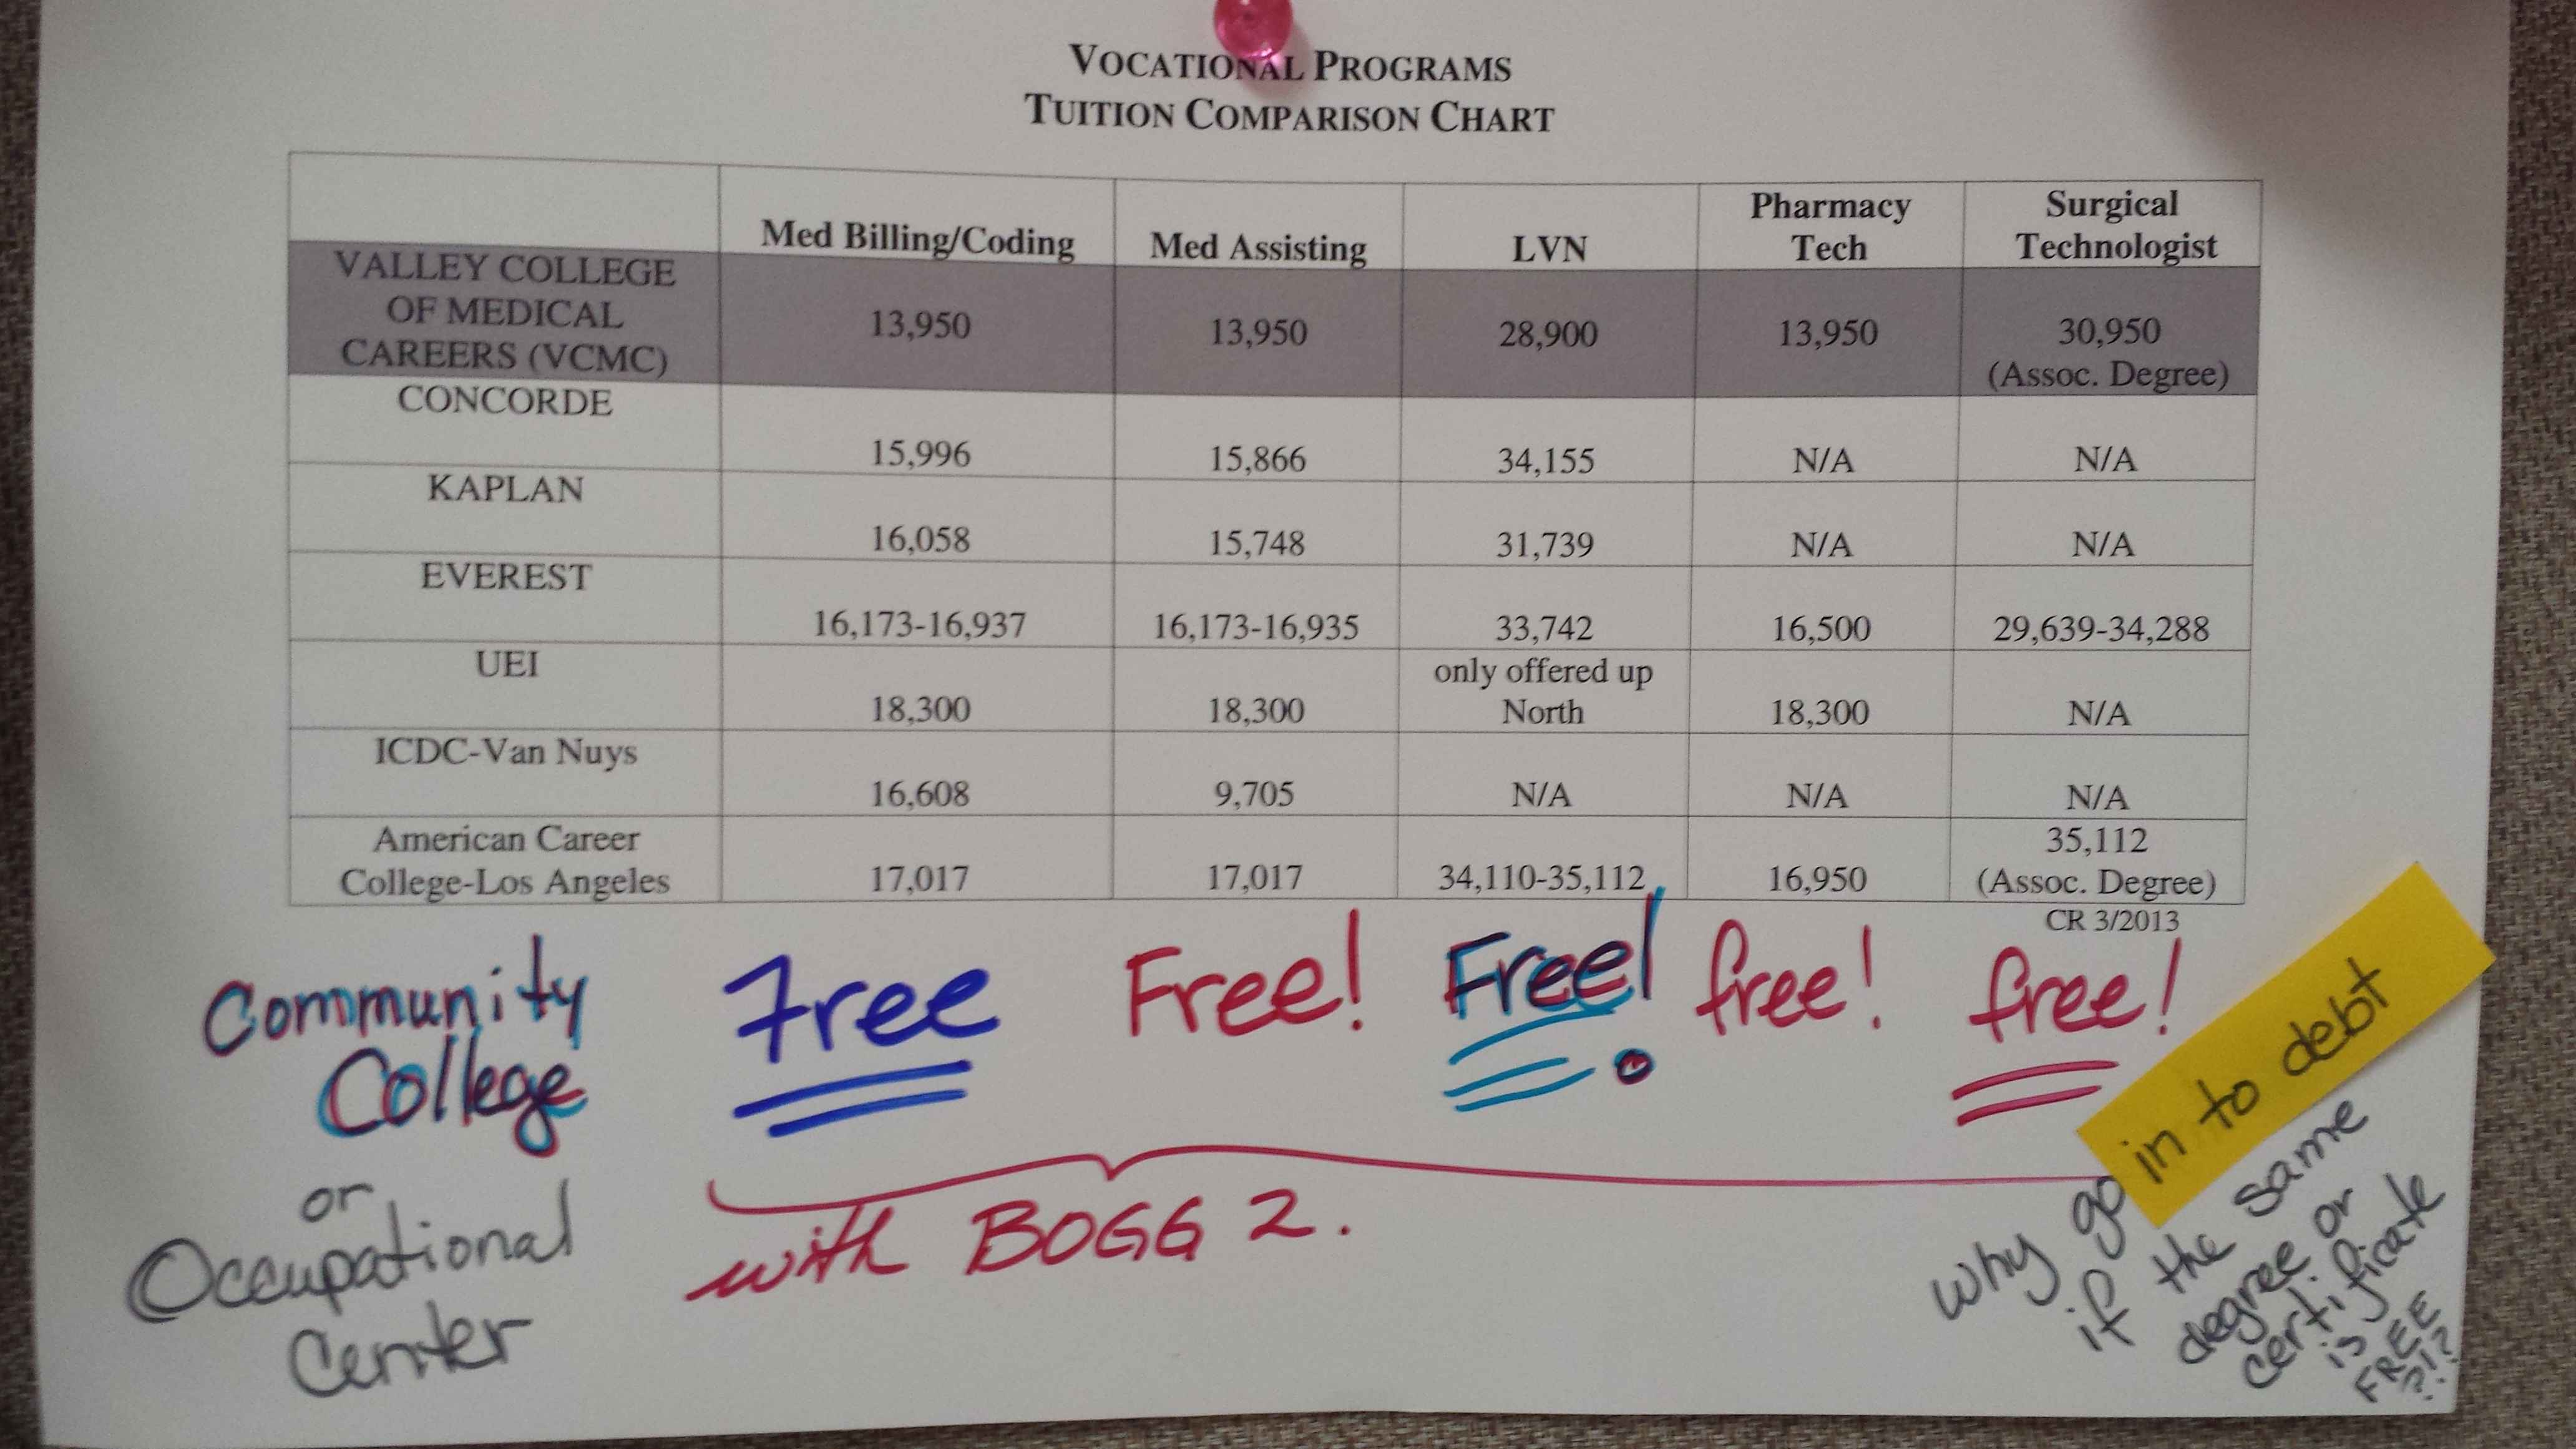 VOCATIONAL PROGRAMS
TUITION COMPARISON CHART
Med Billing/Coding Med Assisting LVN Pharmacy Tech Surgical Technologist
VALLEY COLLEGE OF MEDICAL CAREERS (VCMC) 13,950 13,950 28,900 13,950 30,950 (Assoc. Degree)
CONCORDE 15,996 15,866 34,155 N/A N/A
KAPLAN 16,058 15,748 31,739 N/A N/A
EVEREST 16,173-16,937 16,173-16,935 33,742 16,500 29,639-34,288
UEI 18,300 18,300 only offered up North 18,300 N/A
ICDC-Van Nuys 16,608 9,705 N/A N/A N/A
American Career College-Los Angeles 17,017 17,017 34,110-35,112 16,950 35,112 (Assoc. Degree)
CR 3/2013
Community College Free Free! Free! free! free!
or
Occupational
Center
with BOGG 2.
why go in to debt
if the same
degree or
certificate
is
FREE
?!?